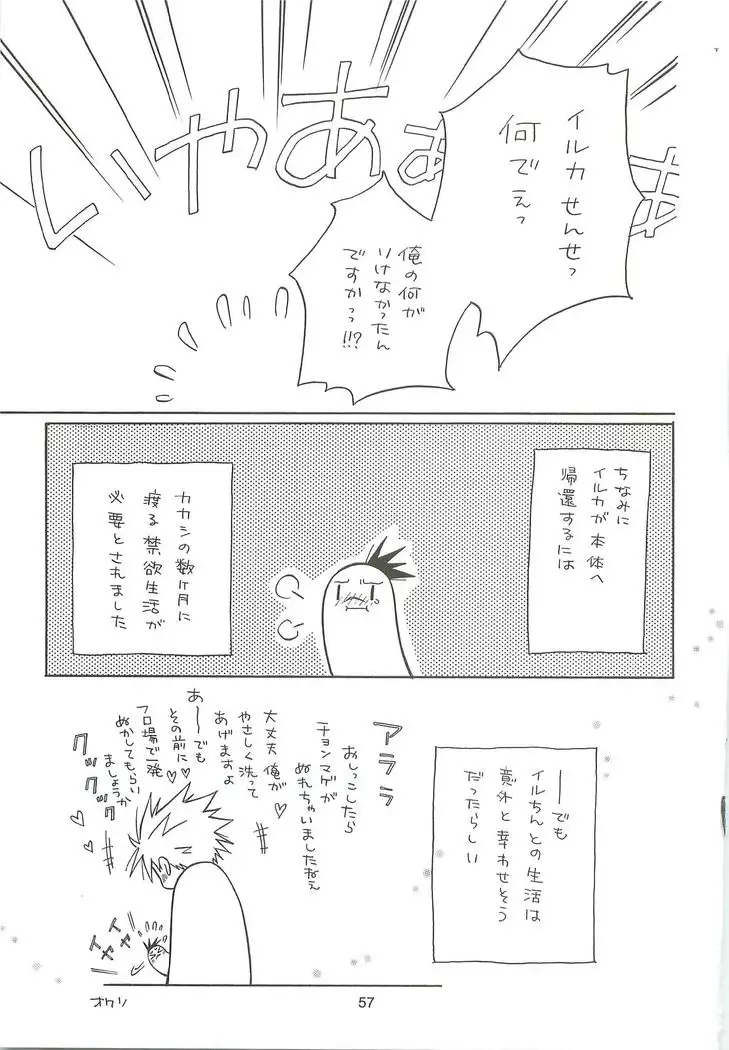 いやあぁ
イルカ せんせっ
何でえっ
俺の何が
いけなかったん
ですかっっ!!!?
ちなみに
イルカが本体へ
帰還するには
カカシの数ヶ月に
渡る禁欲生活が
必要とされました
ーーでも
イルちんとの生活は
意外と幸わせそう
だったらしい
アララ
おしっこしたら
チョンマゲが
ぬれちゃいましたねぇ
大丈夫 俺が
やさしく洗って
あげますよ
あーーでも
その前に
フロ場で一発
ぬかしてもらい
ましょうか
クックックッ
イヤイヤ
オワリ
57